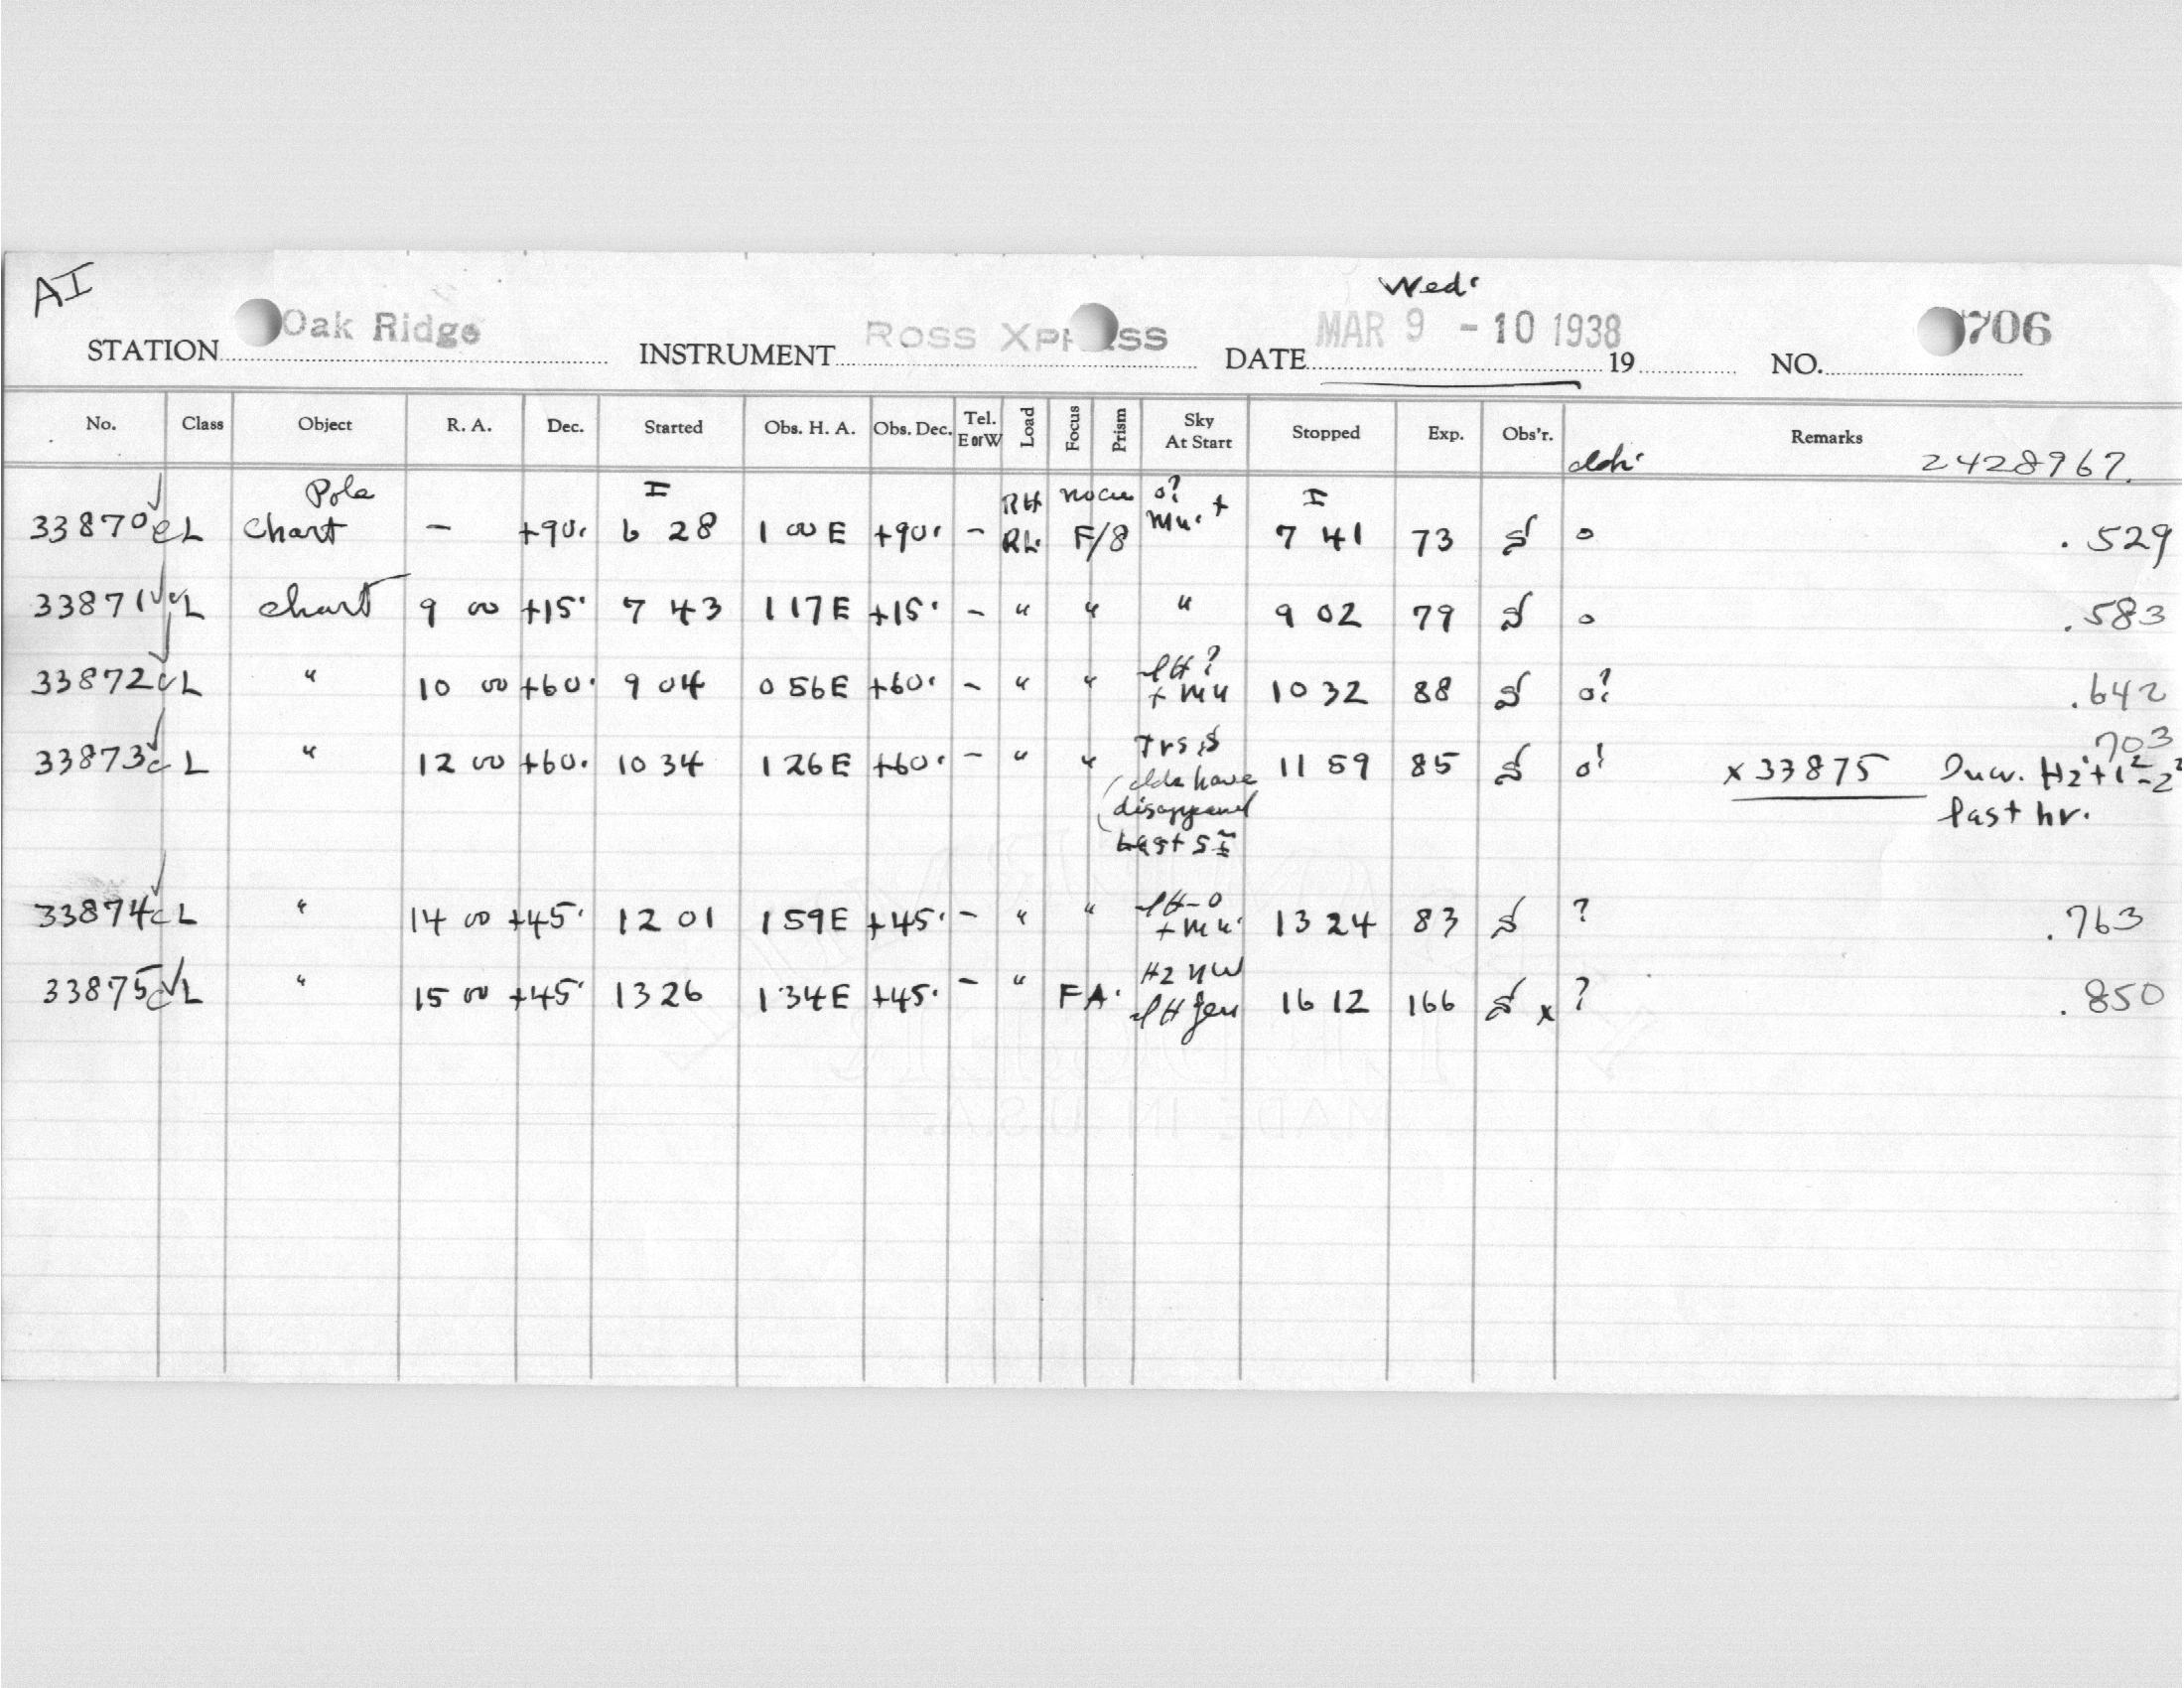 AI
Wed.
STATION Oak Ridge INSTRUMENT ROSS XPRESS DATE MAR 9 - 10 1938 19 NO. 706
No. Class Object R. A. Dec. Started Obs. H. A. Obs. Dec. Tel. E or W Load Focus Prism Sky At Start Stopped Exp. Obs'r. Remarks
2428967.
Pole I RH o? I
33870 L Chart - +90. 6 28 1 00 E +90. - RL. F/8 mu. + 7 41 73 o .529
33871 L chart 9 00 +15. 7 43 1 17 E +15. - " " " 9 02 79 o .583
33872 L " 10 00 +60. 9 04 0 56 E +60. - " " + mu 10 32 88 o? .642
33873 L " 12 00 +60. 10 34 1 26 E +60. - " " 11 59 85 o? .703
x 33875
clds have
disappeared
last 5
last hr.
33874 L " 14 00 +45. 12 01 1 59 E +45. - " " + mu. 13 24 83 ? .763
33875 L " 15 00 +45. 13 26 1 34 E +45. - " FA. Hz NW 16 12 166 x ? .850
MADE IN U.S.A.